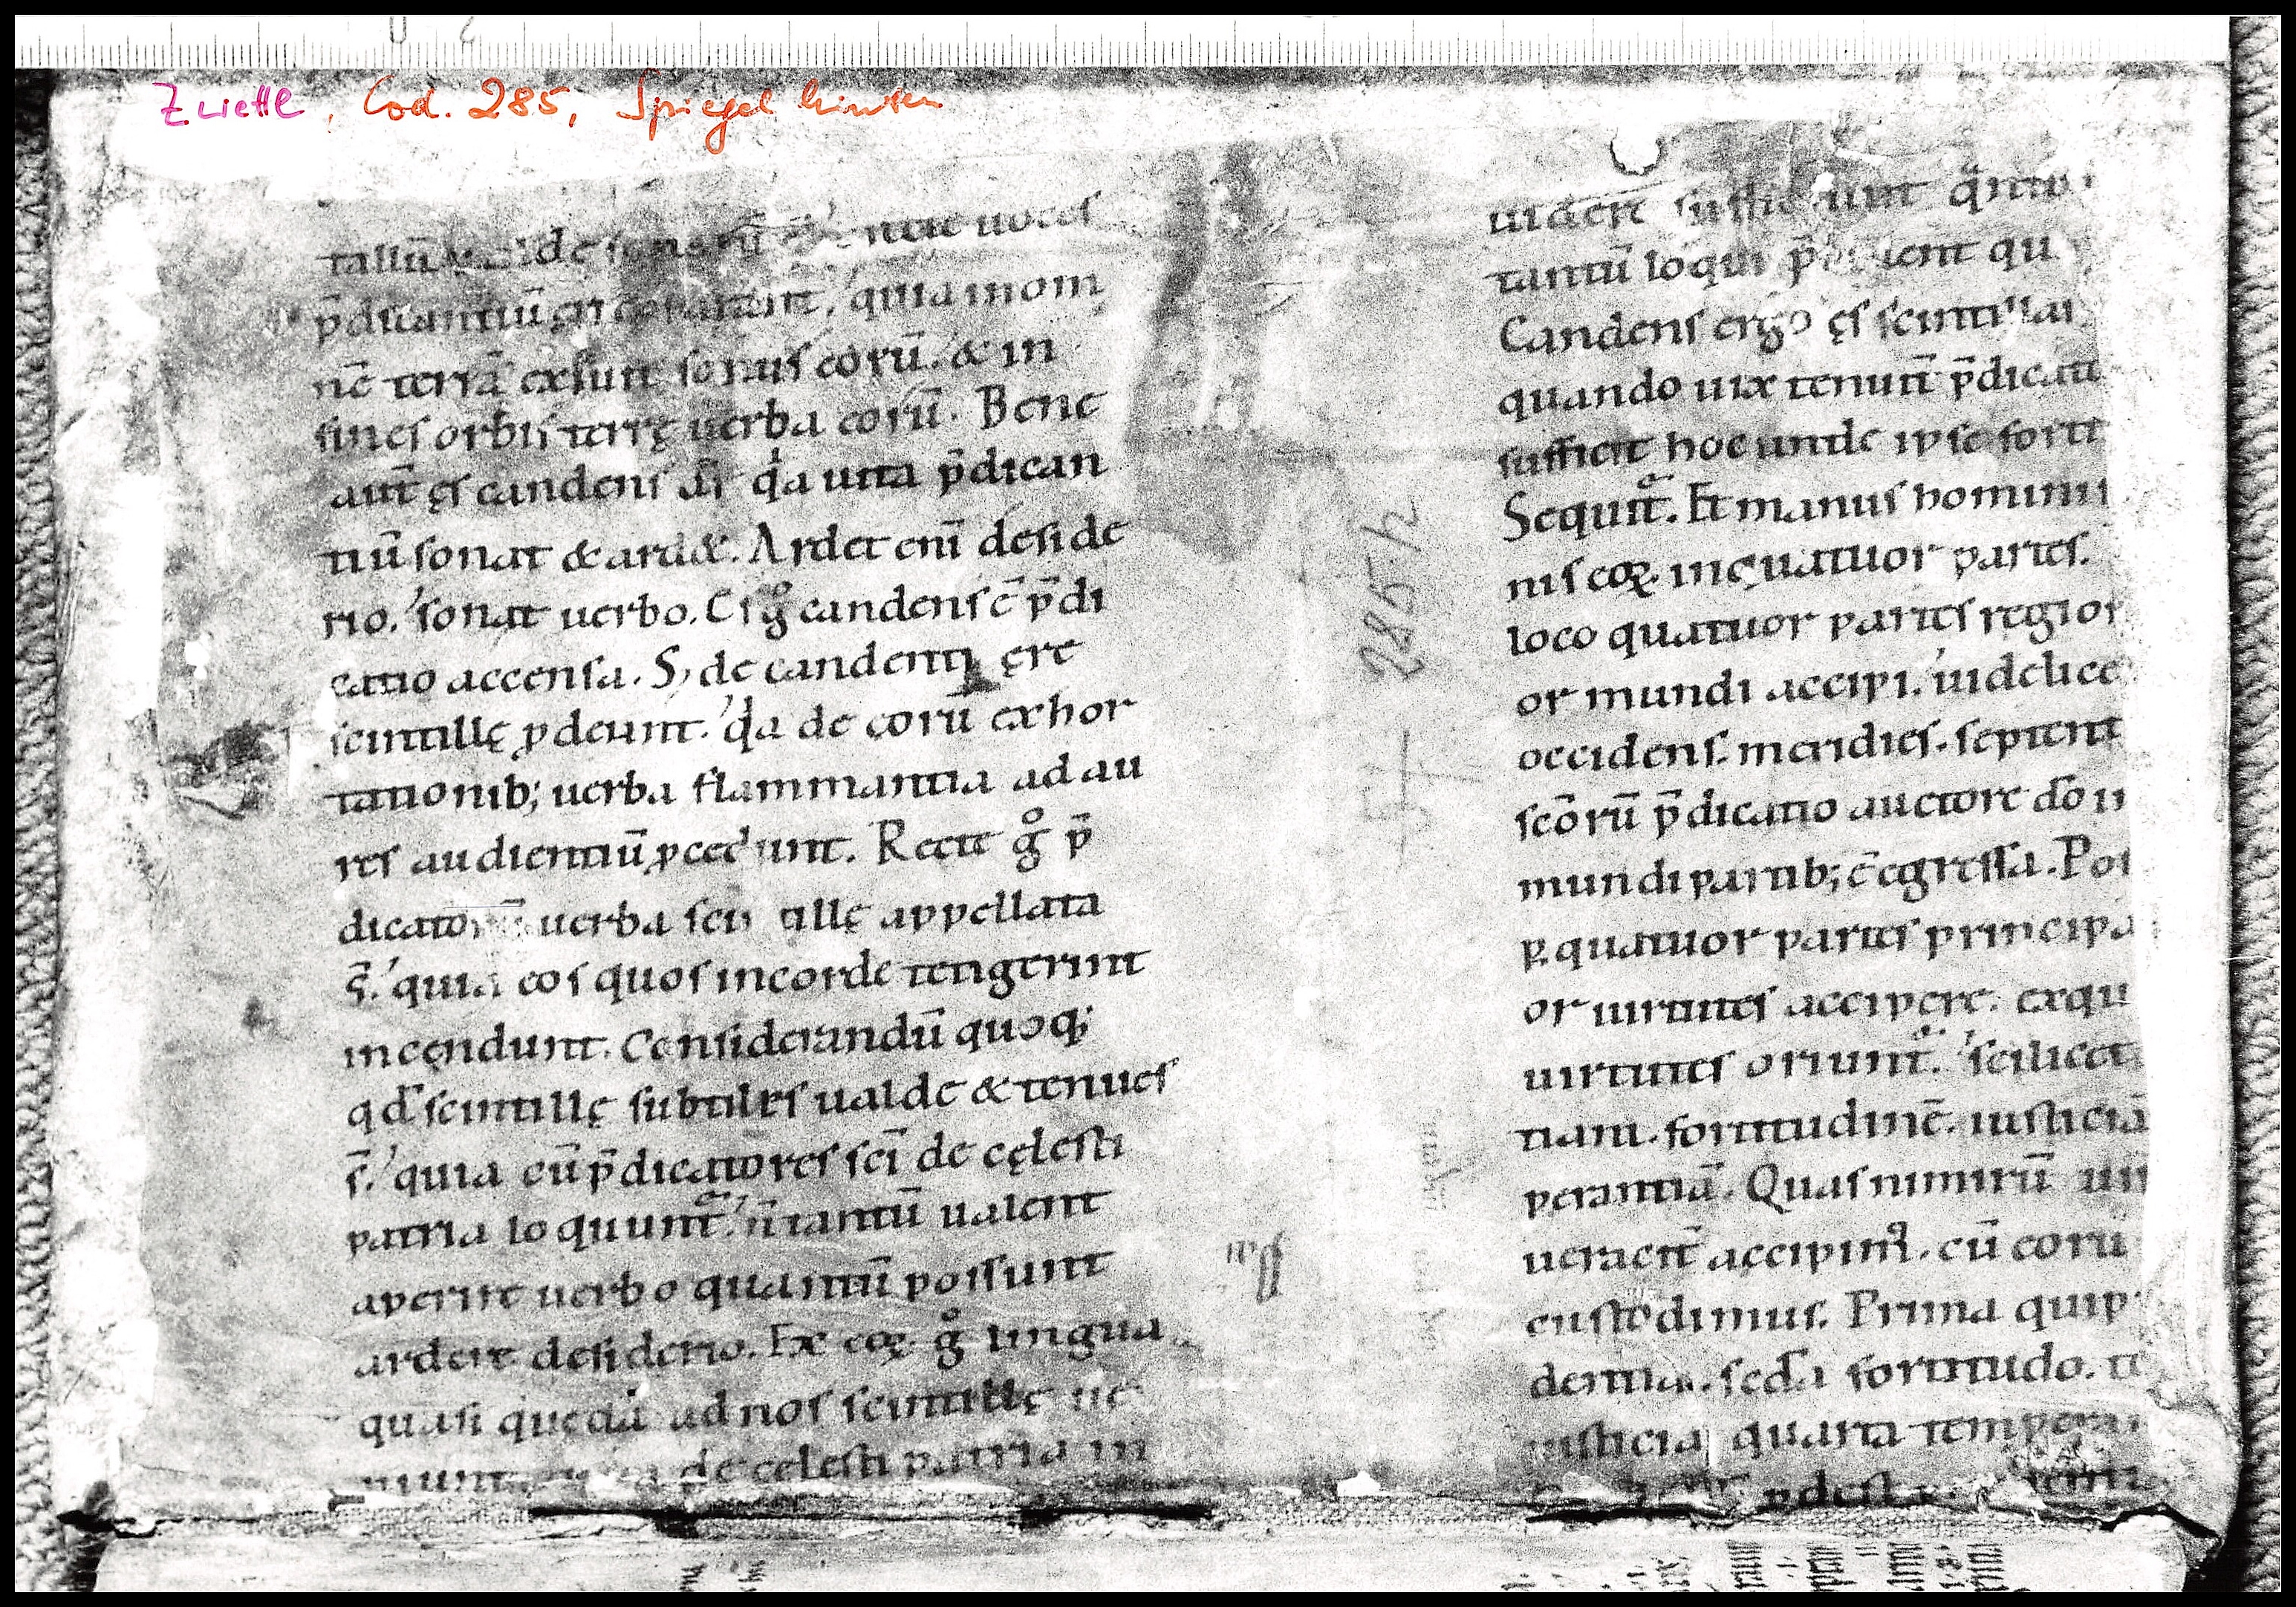 Zwettl, Cod. 285, Spiegel hinten
tallū ualde uoces
p̄dicantiū quia in om
nē terrā exiuit sonus eorū. & in
fines orbis terrę uerba eorū. Bene
aut̄ ęs candens q̇a uita p̄dican
tiū sonat & ard&. Ardet eni deside
rio. sonat uerbo. Ęs g̊ candens ē p̄di
catio accensa. S; de candenti ęre
scintillę ꝓdeunt. q̇a de eorū exhor
tationib; uerba flammantia ad au
res audientiū ꝓcedunt. Recte g̊ p̄
dicatorū uerba scintillę appellata
s̄. quia eos quos in corde tetigerint
incendunt. Considerandū quoq;
qd̄ scintillę subtiles ualde & tenues
s̄. quia cū p̄dicatores sc̄i de cęlesti
patria loquunt̄. n̄ tantū ualent
aperire uerbo quantū possunt
ardere desiderio. Ex eoꝝ g̊ lingua
quasi quedā ad nos scintillę ue
niunt de celesti patria in
uident sufficiunt
tantū loqui qu
Candens ergo ęs scintillat
quando uix tenuit̄ p̄dicat
sufficit hoc unde ipse forti
Sequit̄. Et manus homini
nis eoꝝ. in quatuor partes.
loco quatuor partes region
or mundi accipi. uidelice
occidens. meridies. septent
sc̄orū p̄dicatio auctore dō i
mundi partib; ē egressa. Po
ꝑ quatuor partes principa
or uirtutes accipere. ex qu
uirtutes oriunt̄. scilicet
tiam. fortitudinē. iusticiā
perantiā. Quas nimirū
ueracit̄ accipim᷒. cū coru
custodimus. Prima quip
dentia. sed̄a fortitudo. t
iusticia quarta tempera
ꝓdest
285 h